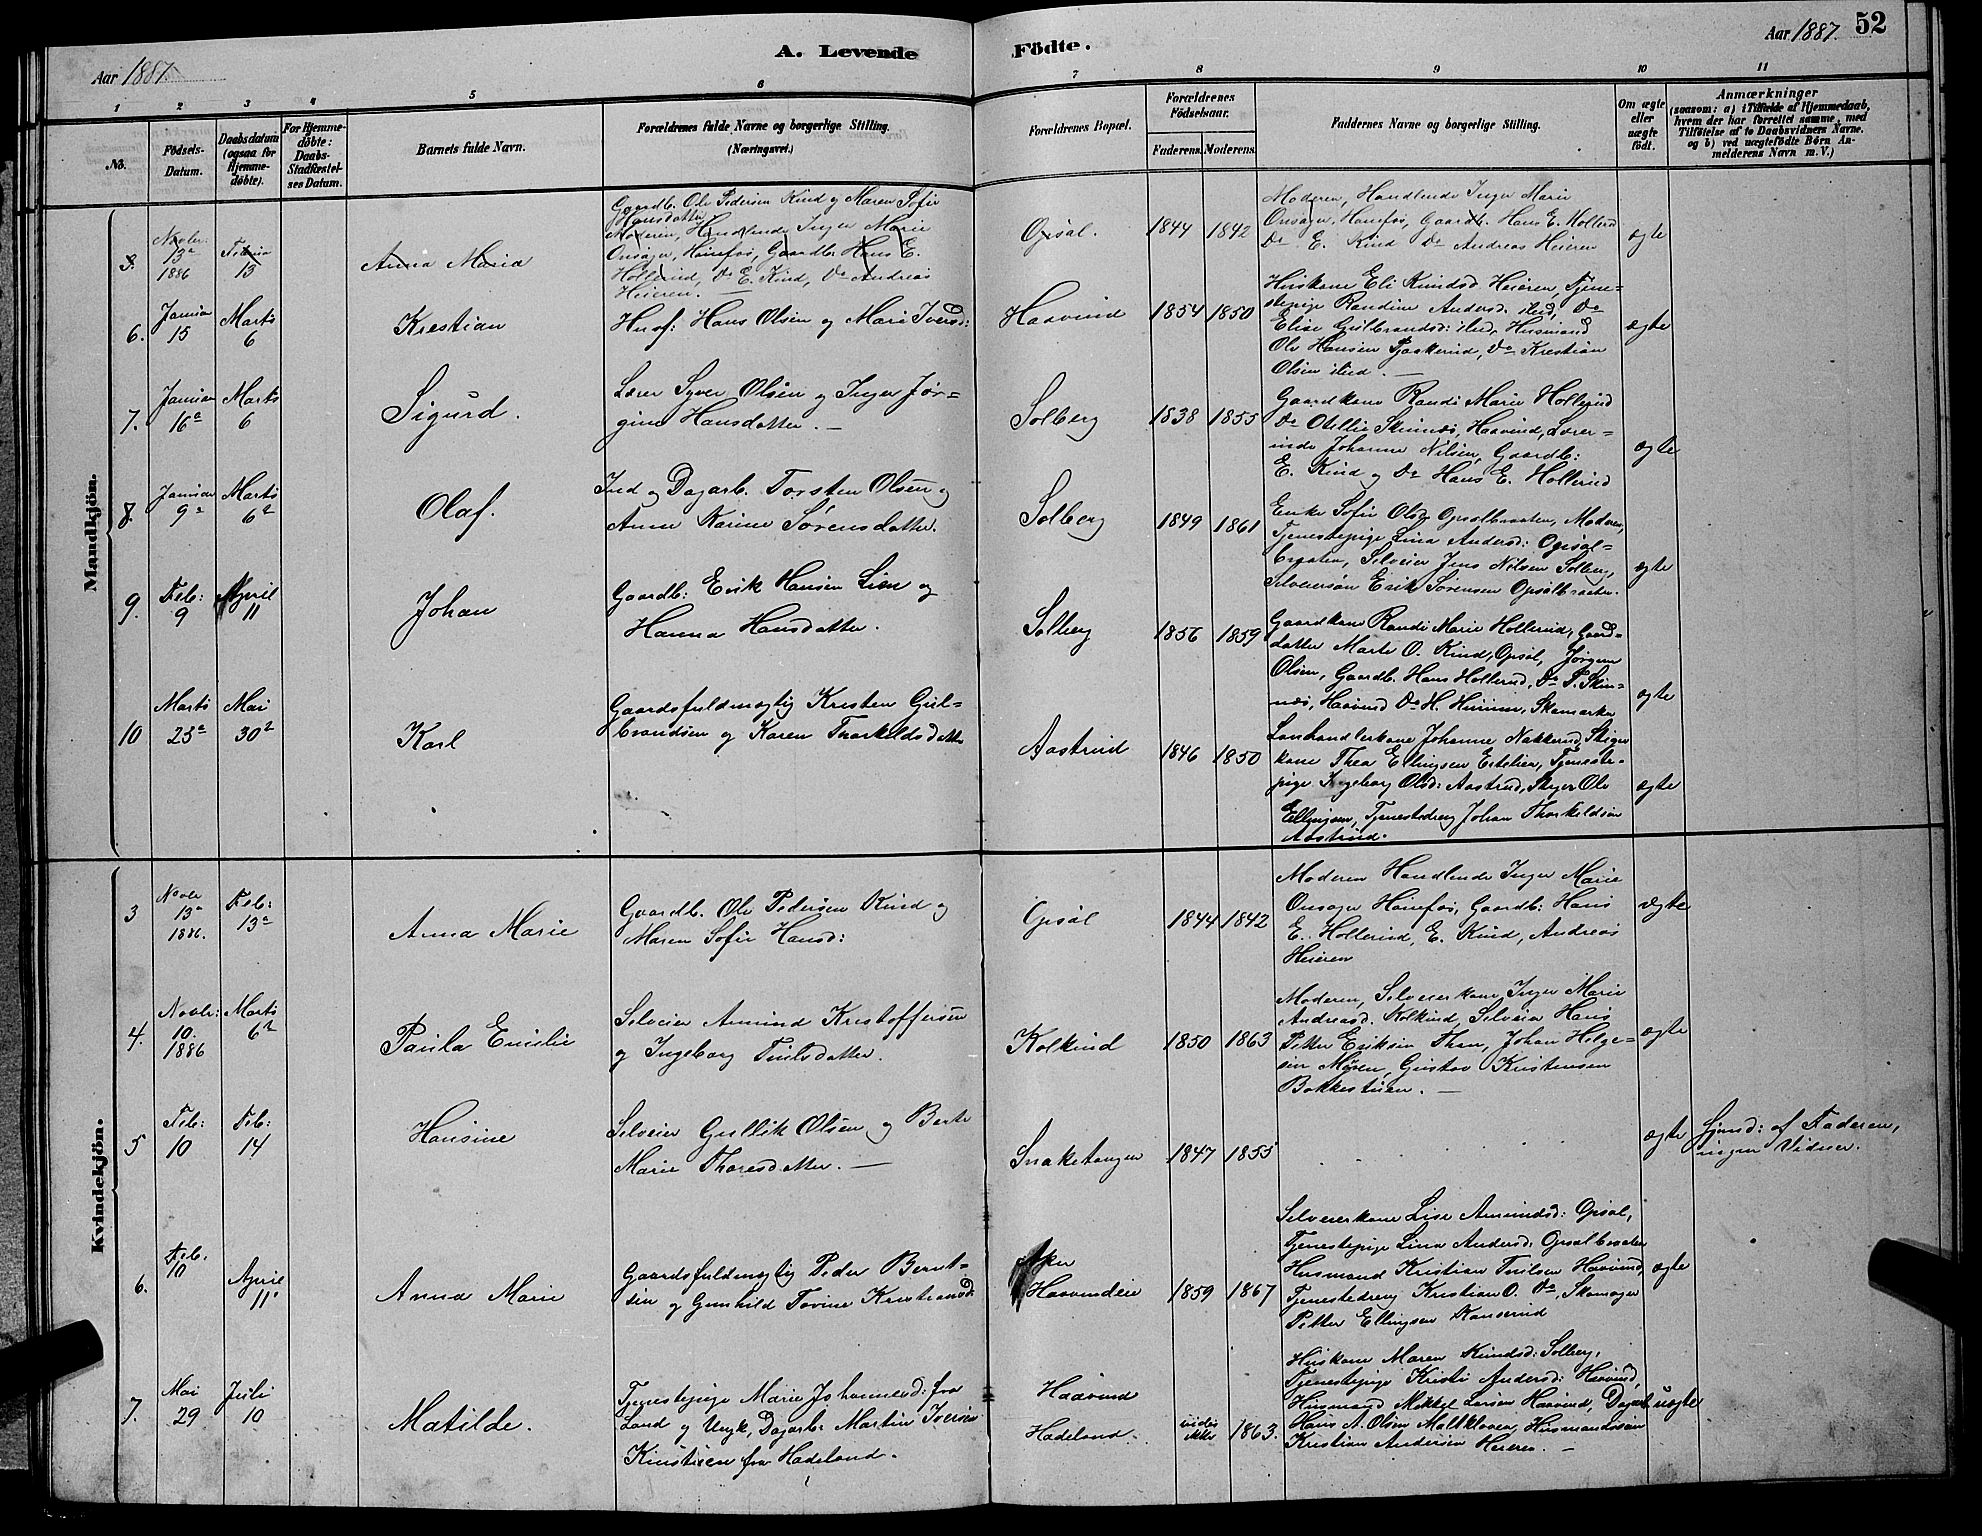 A. Levende Födte.
Aar 1887.
Aar 1887. 52
1 2 3 4 5 6 7 8 9 10 11
No.
Födsels-
Datum.
Daabsdatum
(ogsaa for
Hjemme-
döbte).
For Hjemme-
döbte:
Daabs-
Stadfæstel-
ses Datum.
Barnets fulde Navn.
Forældrenes fulde Navne og borgerlige Stilling.
(Næringsvei.)
Forældrenes Bopæl.
Forældrenes
Födselsaar.
Faderens. Moderens.
Faddernes Navne og borgerlige Stilling.
Om ægte
eller
uægte
födt.
Anmærkninger
(saasom: a) i Tilfælde af Hjemmedaab,
hvem der har forrettet samme, med
Tilföielse af to Daabsvidners Navne.
og b) ved uægtefödte Börn An-
melderens Navn m. V.)
Mandkjön.
3.
Novbr:
13a
1886
13
Anna Maria
Gaardb. Ole Pedersen Kind og Maren Sofie
Hansdatter
Moderen, Handlende Inger Marie
Onsager, Hönefos, Gaardb. Hans E.
Hollerud, Do E. Kind, Do Andreas
Heieren.
Opsal.
1844 1842
Moderen, Handlende Inger Marie
Onsager, Hönefos, Gaardb. Hans E. Hollerud
Do E. Kind Do Andreas Heieren
ægte
6.
Januar
15
Marts
6
Krestian
Husf: Hans Olsen og Mari Iversd:
Haavind
1854 1850
Huskone Eli Knudsd Heieren, Tjene-
stepige Randine Andersd. ibid, Do
Elise Gulbrandsd: ibid, Husmand
Ole Hansen Do Krestian
Olsen ibid. —
ægte
7.
Januar
16a
Marts
6
Sigurd.
Lærer Syver Olsen og Inger Jør-
gine Hansdatter. —
Solberg
1838 1855
Gaardkone Randi Marie Hollerud
Do Otellie Skinnes, Haavind, Lærer-
inde Johanne Nilsen, Gaardb:
E. Kind og Do Hans E. Hollerud
ægte
8.
Januar
9a
Marts
6a
Olaf.
Ind og Dagarb. Torsten Olsen og
Anne Karine Sørensdatter.
Solberg
1849 1861
Enke Sofie Olsd Opsalbraaten, Moderen,
Tjenestepige Lina Andersd: Opsal-
braaten, Selveier Jens Nilsen Solberg,
Selveiersøn Erik Sørensen Opsalbraaten.
ægte
9.
Feb:
9
April
11
Johan
Gaardb: Erik Hansen Lien og
Hanna Hansdatter.
Solberg
1856 1859
Gaardkone Randi Marie Hollerud, Gaard-
datter Marte O. Kind, Opsal, Jørgen
Olsen, Gaardb. Hans Hollerud, Do P. Skin-
nes, Haavind Do H. Skomaker
ægte
10
Marts
23a
Mai
30a
Karl
Gaardsfuldmægtig Kristen Gul-
brandsen og Karen Thorkildsdatter
Aastrud
1846 1850
Landhandlerkone Johanne Nakkerud, Stiger
kone Thea Ellingsen Ertelien, Tjeneste-
pige Ingeborg Olsd: Aastrud, Ole
Ellingsen, Tjenestedreng Johan Thorkildsen
Aastrud.
ægte
Kvindekjön.
3
Novbr
13a
1886.
Feb:
13a
Anna Marie
Gaardb. Ole Pedersen Kind og
Maren Sofie Hansd:
Opsal
1844 1842
Moderen Handlende Inger Marie
Onsager Hönefos, Gaardb: Hans
E. Hollerud, E. Kind, Andreas
Heieren
ægte
4.
Novbr:
10.
1886
Marts
6a
Paula Emilie
Selveier Amund Kristoffersen
og Ingeborg
Kolkind
1850 1863
Moderen, Selveierkone Inger Marie
Andreasd. Kolkind, Selveier Hans
Petter Eriksen Johan Helge-
sen Møren, Gustav Kristensen
Bakkestuen. —
ægte
5
Feb:
10
Feb:
14
Hansine
Selveier Gullik Olsen og Berte
Marie Thoresdatter. —
Snaketangen
1847 1855
ægte
Hjemd: af Faderen,
ingen Vidner.
6.
Feb.
10
April
11
Anna Marie
Gaardsfuldmægtig Peder Bernt-
sen og Gunhild Tovine Kristiansd:
Haavindeie
1859 1867
Selveierkone Lise Amundsd: Opsal,
Tjenestepige Lina Andersd: Opsalbraaten
Husmand Kristian Haavind,
Tjenestedreng Kristian O. Do, Skomager
Petter Ellingsen
ægte
7.
Mai
29
Juli
10
Matilde.
Tjenestepige Marie Johannesd: fra
Land og Ungk, Dagarb: Martin Iversen
fra Hadeland.
Haavind
Hadeland.
vides
ikke
1863.
Huskone Maren Knudsd: Solberg,
Tjenestepige Kristi Andersd: Haavind,
Husmand Mikkel Larsen Haavind, Dagarb
Hans A. Olsen Husmandssøn
Kristian Andersen Heieren. —
uægte